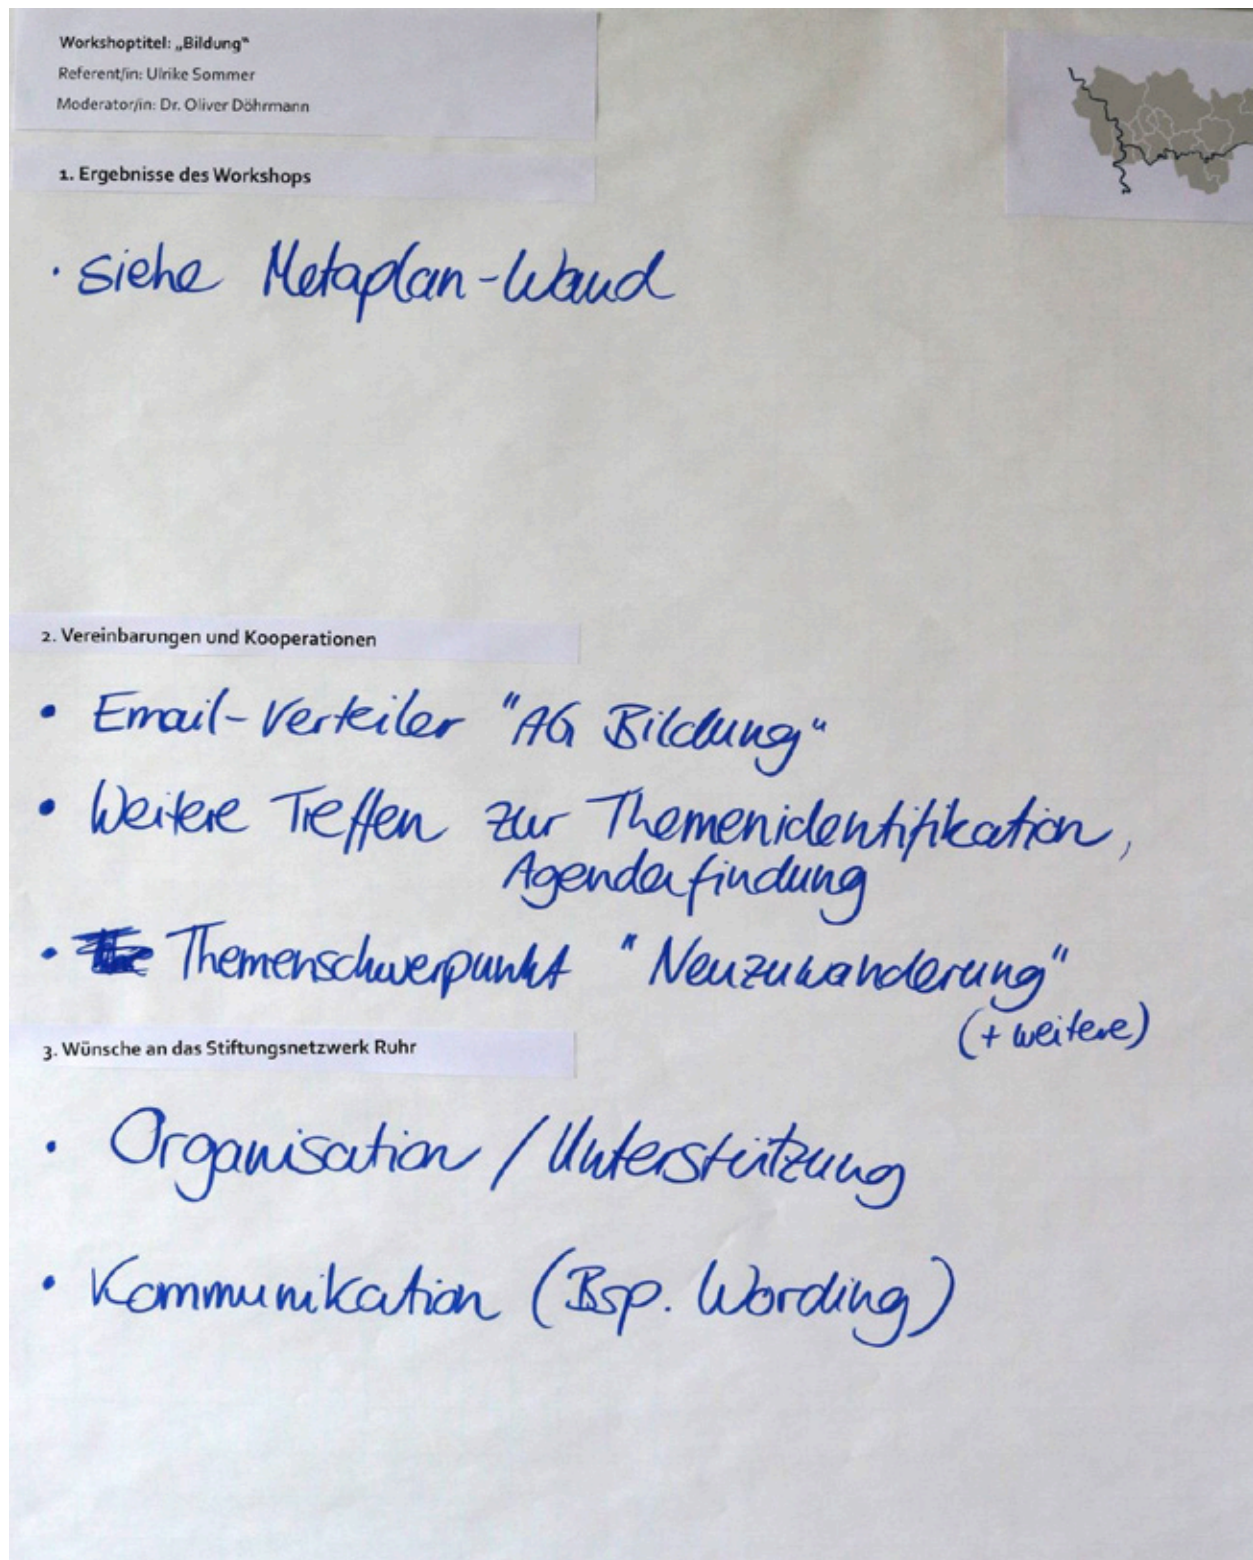 Workshoptitel: „Bildung“
Referent/in: Ulrike Sommer
Moderator/in: Dr. Oliver Döhrmann
1. Ergebnisse des Workshops
· siehe Metaplan-Wand
2. Vereinbarungen und Kooperationen
• Email-Verteiler "AG Bildung"
• Weitere Treffen zur Themenidentifikation,
Agendafindung
• Themenschwerpunkt "Neuzuwanderung"
(+ weitere)
3. Wünsche an das Stiftungsnetzwerk Ruhr
• Organisation / Unterstützung
• Kommunikation (Bsp. Wording)